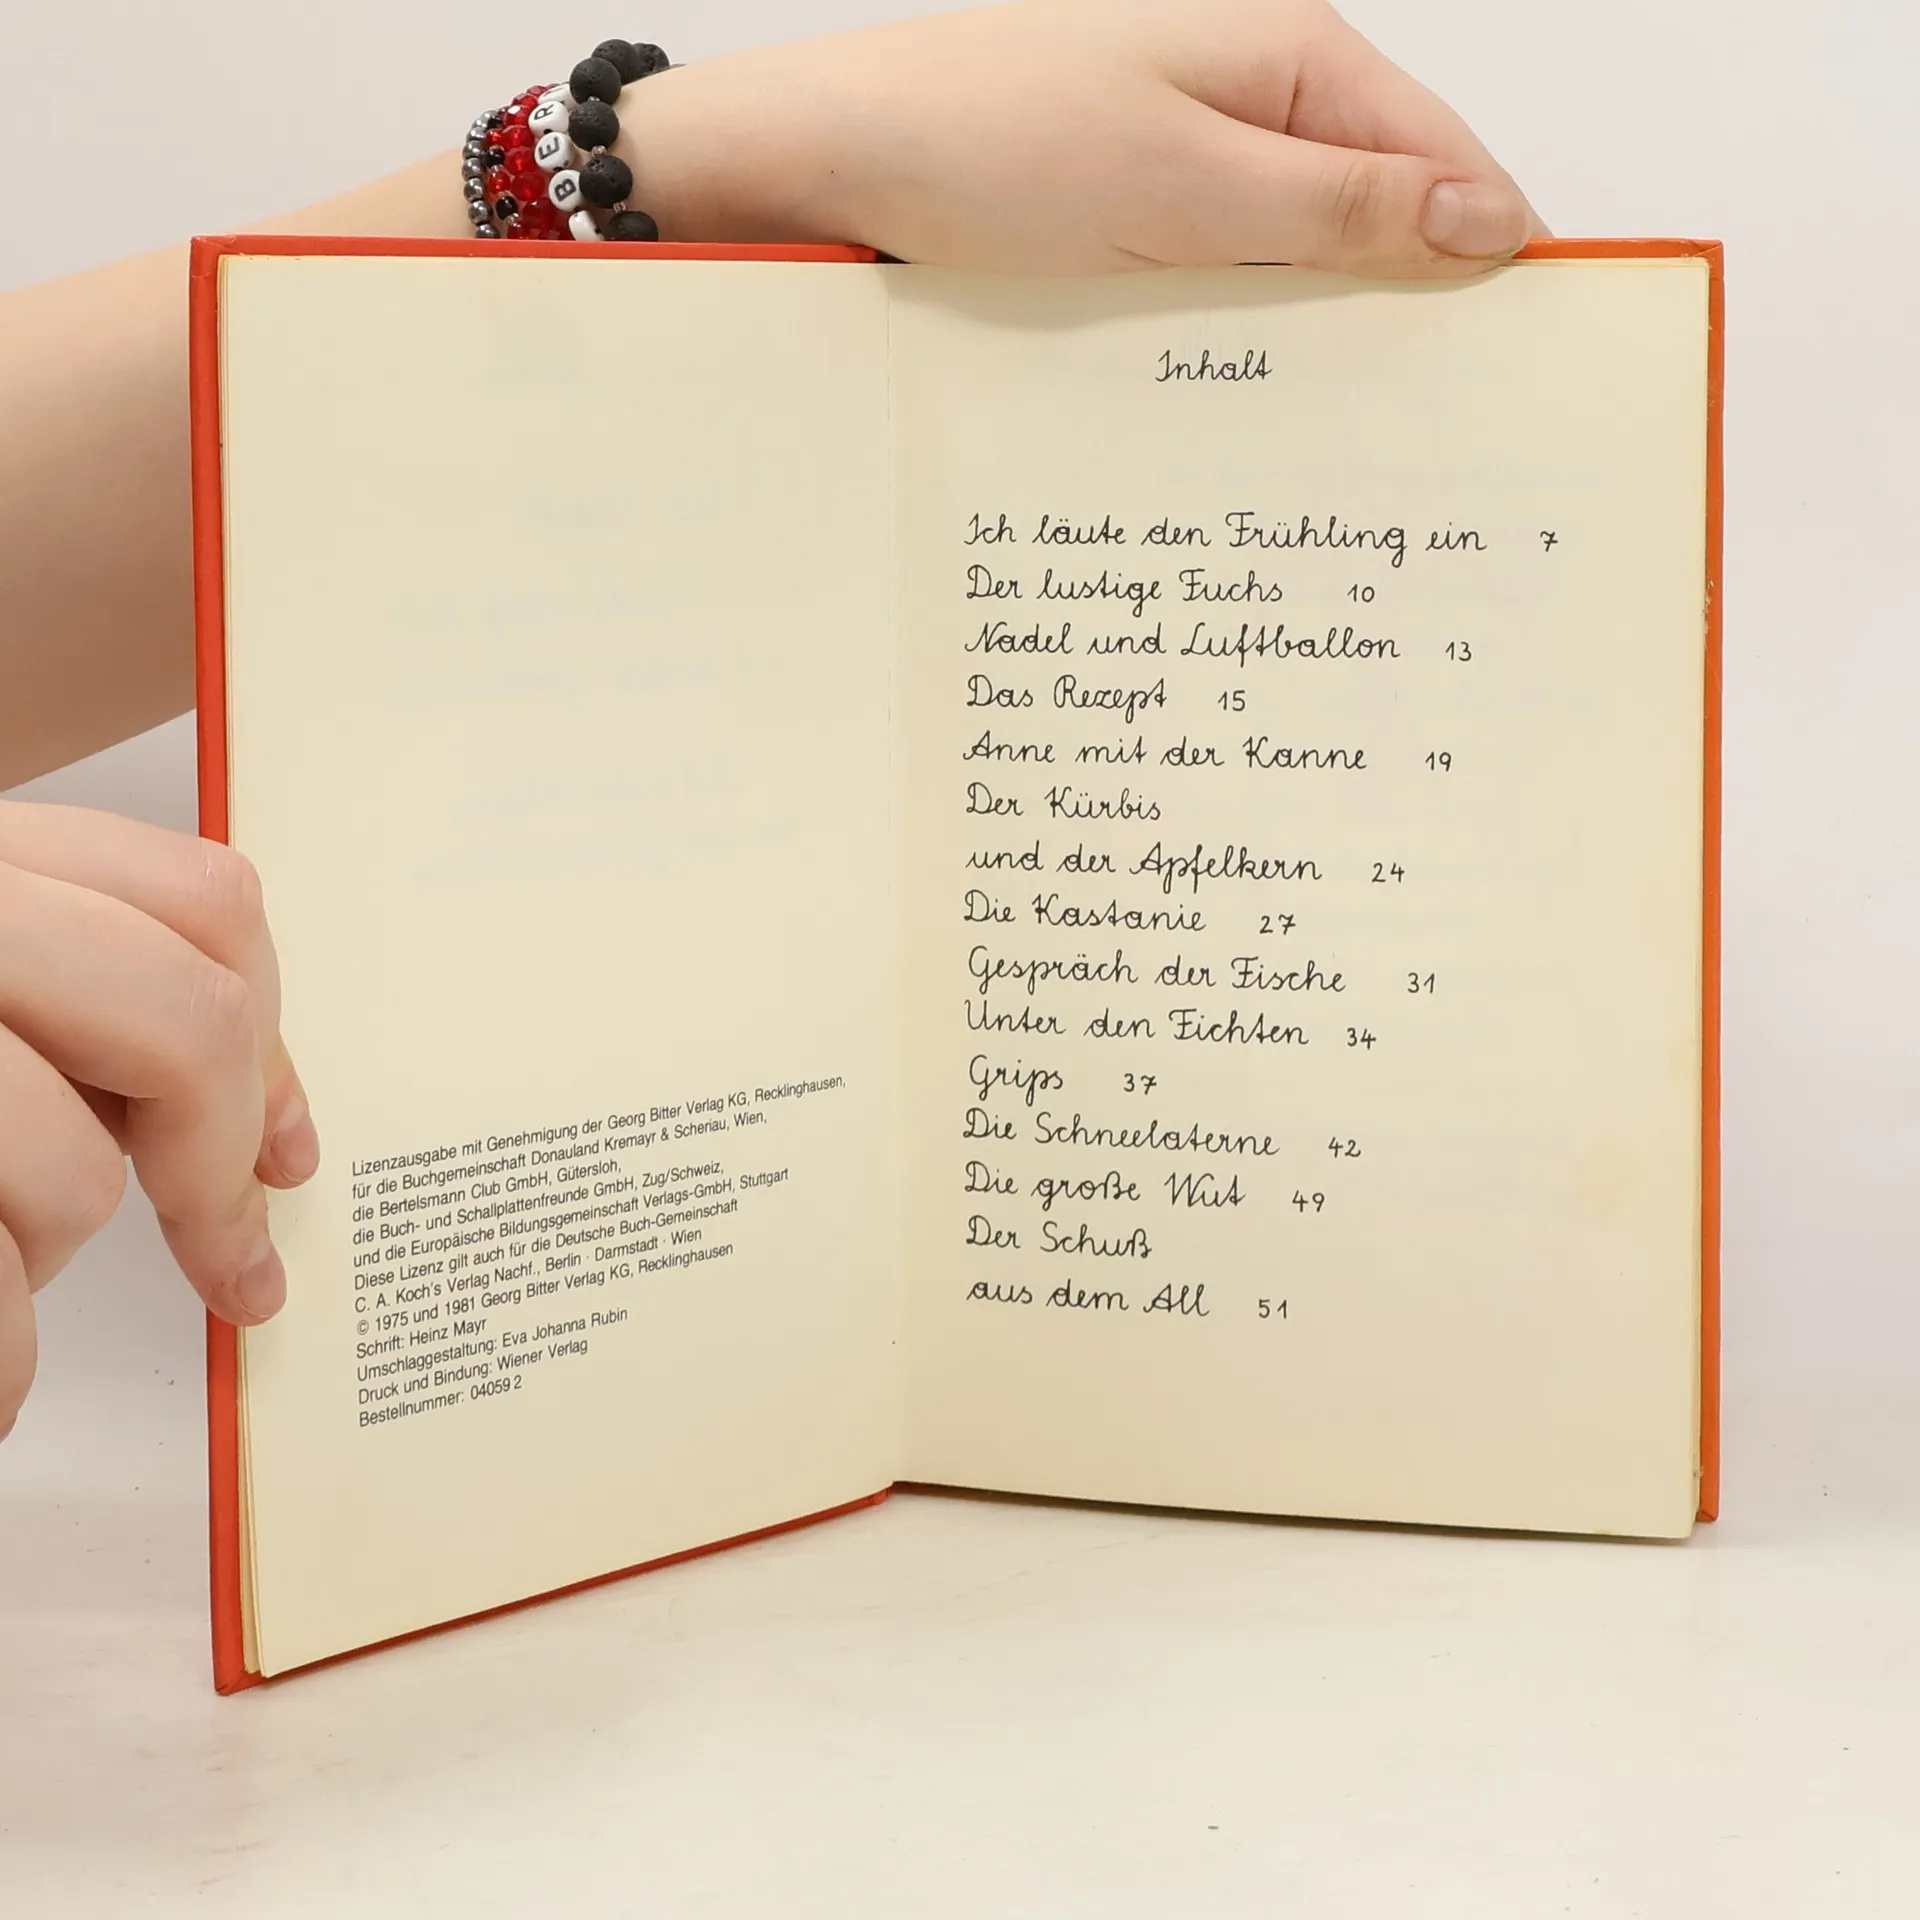 BER
Lizenzausgabe mit Genehmigung der Georg Bitter Verlag KG, Recklinghausen,
für die Buchgemeinschaft Donauland Kremayr & Scheriau, Wien,
die Bertelsmann Club GmbH, Gütersloh,
die Buch- und Schallplattenfreunde GmbH, Zug/Schweiz,
und die Europäische Bildungsgemeinschaft Verlags-GmbH, Stuttgart
Diese Lizenz gilt auch für die Deutsche Buch-Gemeinschaft
C. A. Koch's Verlag Nachf., Berlin · Darmstadt · Wien
© 1975 und 1981 Georg Bitter Verlag KG, Recklinghausen
Schrift: Heinz Mayr
Umschlaggestaltung: Eva Johanna Rubin
Druck und Bindung: Wiener Verlag
Bestellnummer: 04059 2
Inhalt
Ich läute den Frühling ein 7
Der lustige Fuchs 10
Nadel und Luftballon 13
Das Rezept 15
Anne mit der Kanne 19
Der Kürbis
und der Apfelkern 24
Die Kastanie 27
Gespräch der Fische 31
Unter den Fichten 34
Grips 37
Die Schneelaterne 42
Die große Wut 49
Der Schuß
aus dem All 51